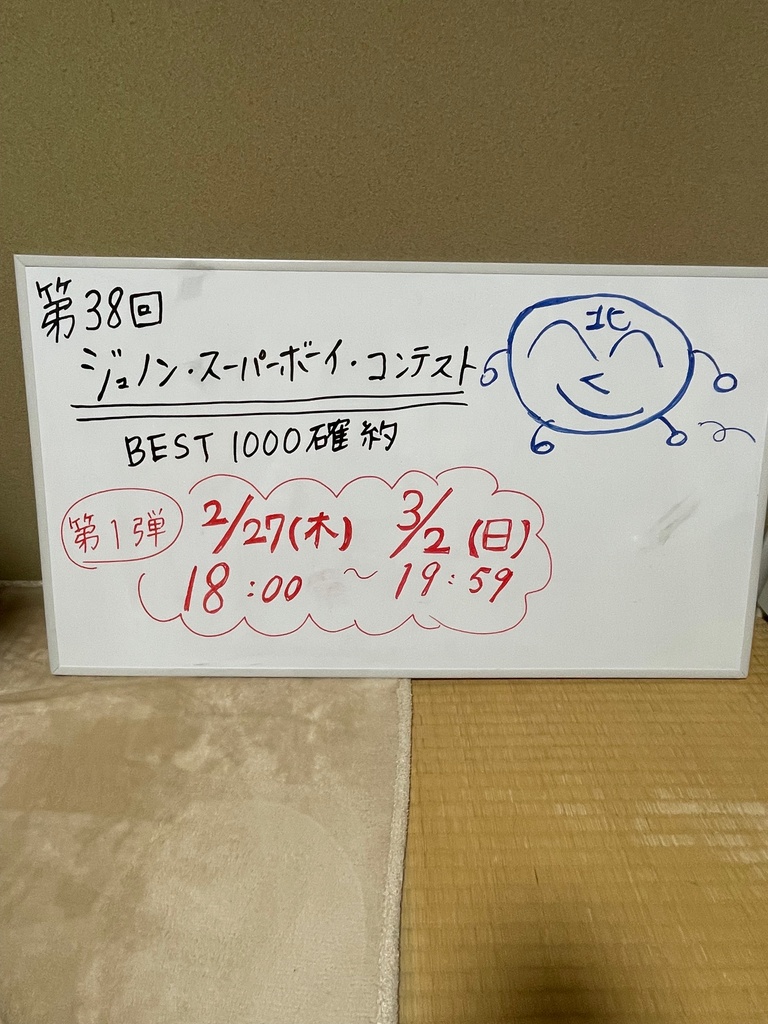 第38回
ジュノン・スーパーボーイ・コンテスト
BEST 1000確約
第1弾
2/27(木) 3/2(日)
18:00 ~ 19:59
北